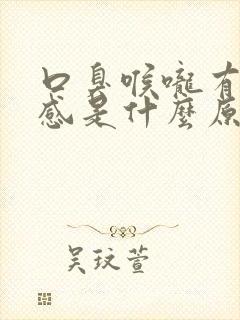 口臭喉嚨有
感是什麼原
吴玟萱